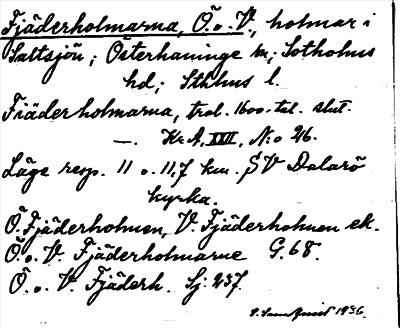 Fjäderholmarna, Ö. o. V., holmar i
Saltsjön; Österhaninge sn; Sotholms
hd; Sthlms l.
Fiäderholmarna, trol. 1600-tal. slut.
—. Kr. A. XXII, N:o 26.
Läge resp. 11 o. 11,7 km. SV Dalarö
kyrka.
Ö. Fjäderholmen, V. Fjäderholmen ek.
Ö. o. V. Fjäderholmarne G. 68.
Ö. o. V. Fjäderh. Sj. 237.
1936.